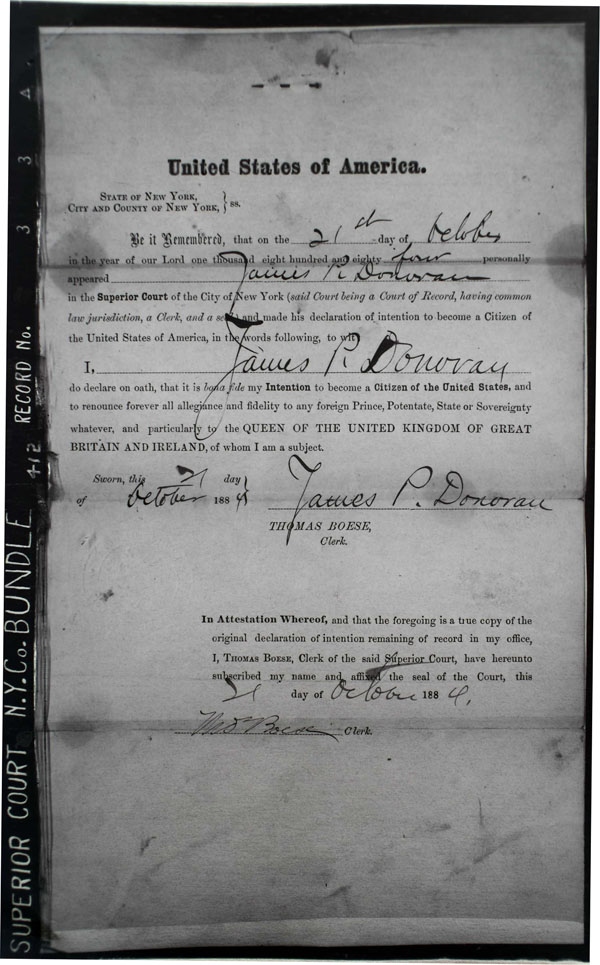 United States of America.
STATE OF NEW YORK,
CITY AND COUNTY OF NEW YORK, } ss.
Be it Remembered, that on the 21st day of October
in the year of our Lord one thousand eight hundred and eighty four personally
appeared James P. Donovan
in the Superior Court of the City of New York (said Court being a Court of Record, having common
law jurisdiction, a Clerk, and a seal) and made his declaration of intention to become a Citizen of
the United States of America, in the words following, to wit:
I, James P. Donovan
do declare on oath, that it is bona fide my Intention to become a Citizen of the United States, and
to renounce forever all allegiance and fidelity to any foreign Prince, Potentate, State or Sovereignty
whatever, and particularly to the QUEEN OF THE UNITED KINGDOM OF GREAT
BRITAIN AND IRELAND, of whom I am a subject.
Sworn, this 21 day
of October 1884 } James P. Donovan
THOMAS BOESE,
Clerk.
In Attestation Whereof, and that the foregoing is a true copy of the
original declaration of intention remaining of record in my office,
I, THOMAS BOESE, Clerk of the said Superior Court, have hereunto
subscribed my name and affixed the seal of the Court, this
21 day of October 1884.
Thos Boese Clerk.
SUPERIOR COURT N.Y.Co. BUNDLE 412 RECORD No. 3 3 4